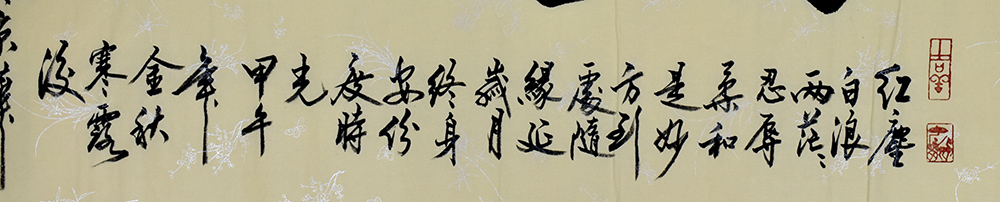 红塵
白浪
两茫〻
忍辱
柔和
是妙
方到
處隨
緣延
歲月
終身
安份
度時
光
甲午
年
金秋
寒露
後